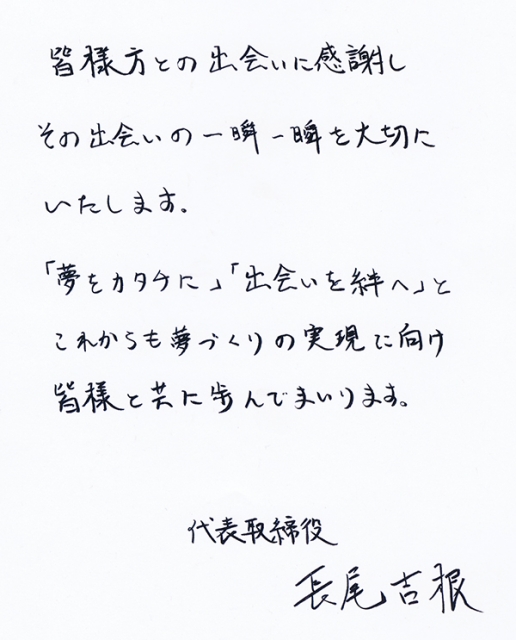 皆様方との出会いに感謝し
その出会いの一瞬一瞬を大切に
いたします。
「夢をカタチに」「出会いを絆へ」と
これからも夢づくりの実現に向け
皆様と共に歩んでまいります。
代表取締役
長尾吉根